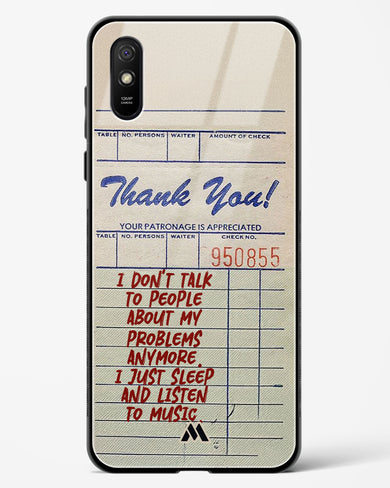 13MP
TABLE NO. PERSONS WAITER AMOUNT OF CHECK
Thank You!
YOUR PATRONAGE IS APPRECIATED
TABLE NO. PERSONS WAITER CHECK NO.
950855
I DON'T TALK
TO PEOPLE
ABOUT MY
PROBLEMS
ANYMORE.
I JUST SLEEP
AND LISTEN
TO MUSIC.